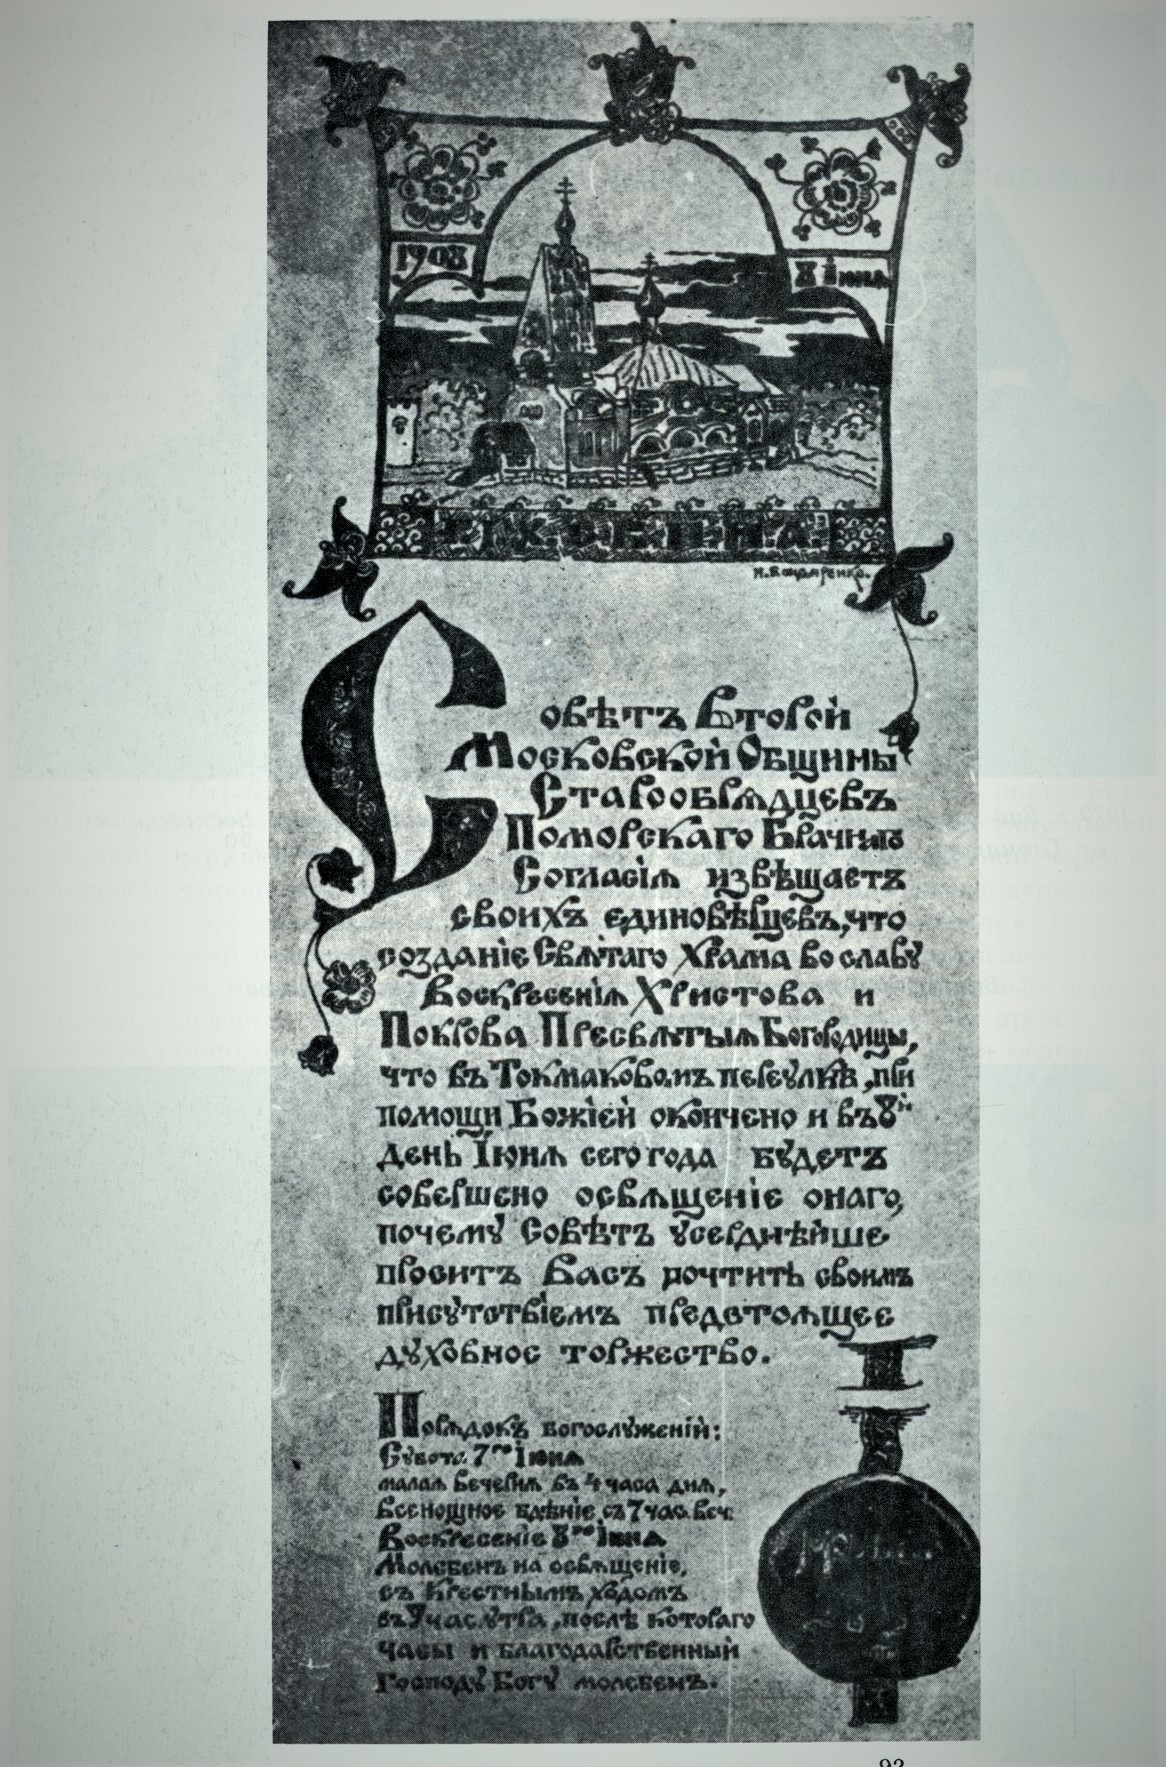 1908
8 Іюня
И. Бондаренко.
Совѣтъ Второй
Московской Общины
Старообрядцевъ
Поморскаго Брачнаго
Согласія извѣщаетъ
своихъ единовѣрцевъ, что
созданіе Святаго Храма во славу
Воскресенія Христова и
Покрова Пресвятыя Богородицы,
что въ Токмаковомъ переулкѣ, при
помощи Божіей окончено и въ 8й
день Іюня сего года будетъ
совершено освященіе онаго,
почему Совѣтъ усерднѣйше
проситъ Васъ почтить своимъ
присутствіемъ предстоящее
духовное торжество.
Порядокъ богослуженій:
Субота 7го Іюня
малая вечерня въ 4 часа дня,
Всенощное бдѣніе съ 7 час. веч.
Воскресеніе 8го Іюня
Молебенъ на освященіе,
съ Крестнымъ ходомъ
въ час. утра, послѣ котораго
часы и благодарственный
Господу Богу молебенъ.
93